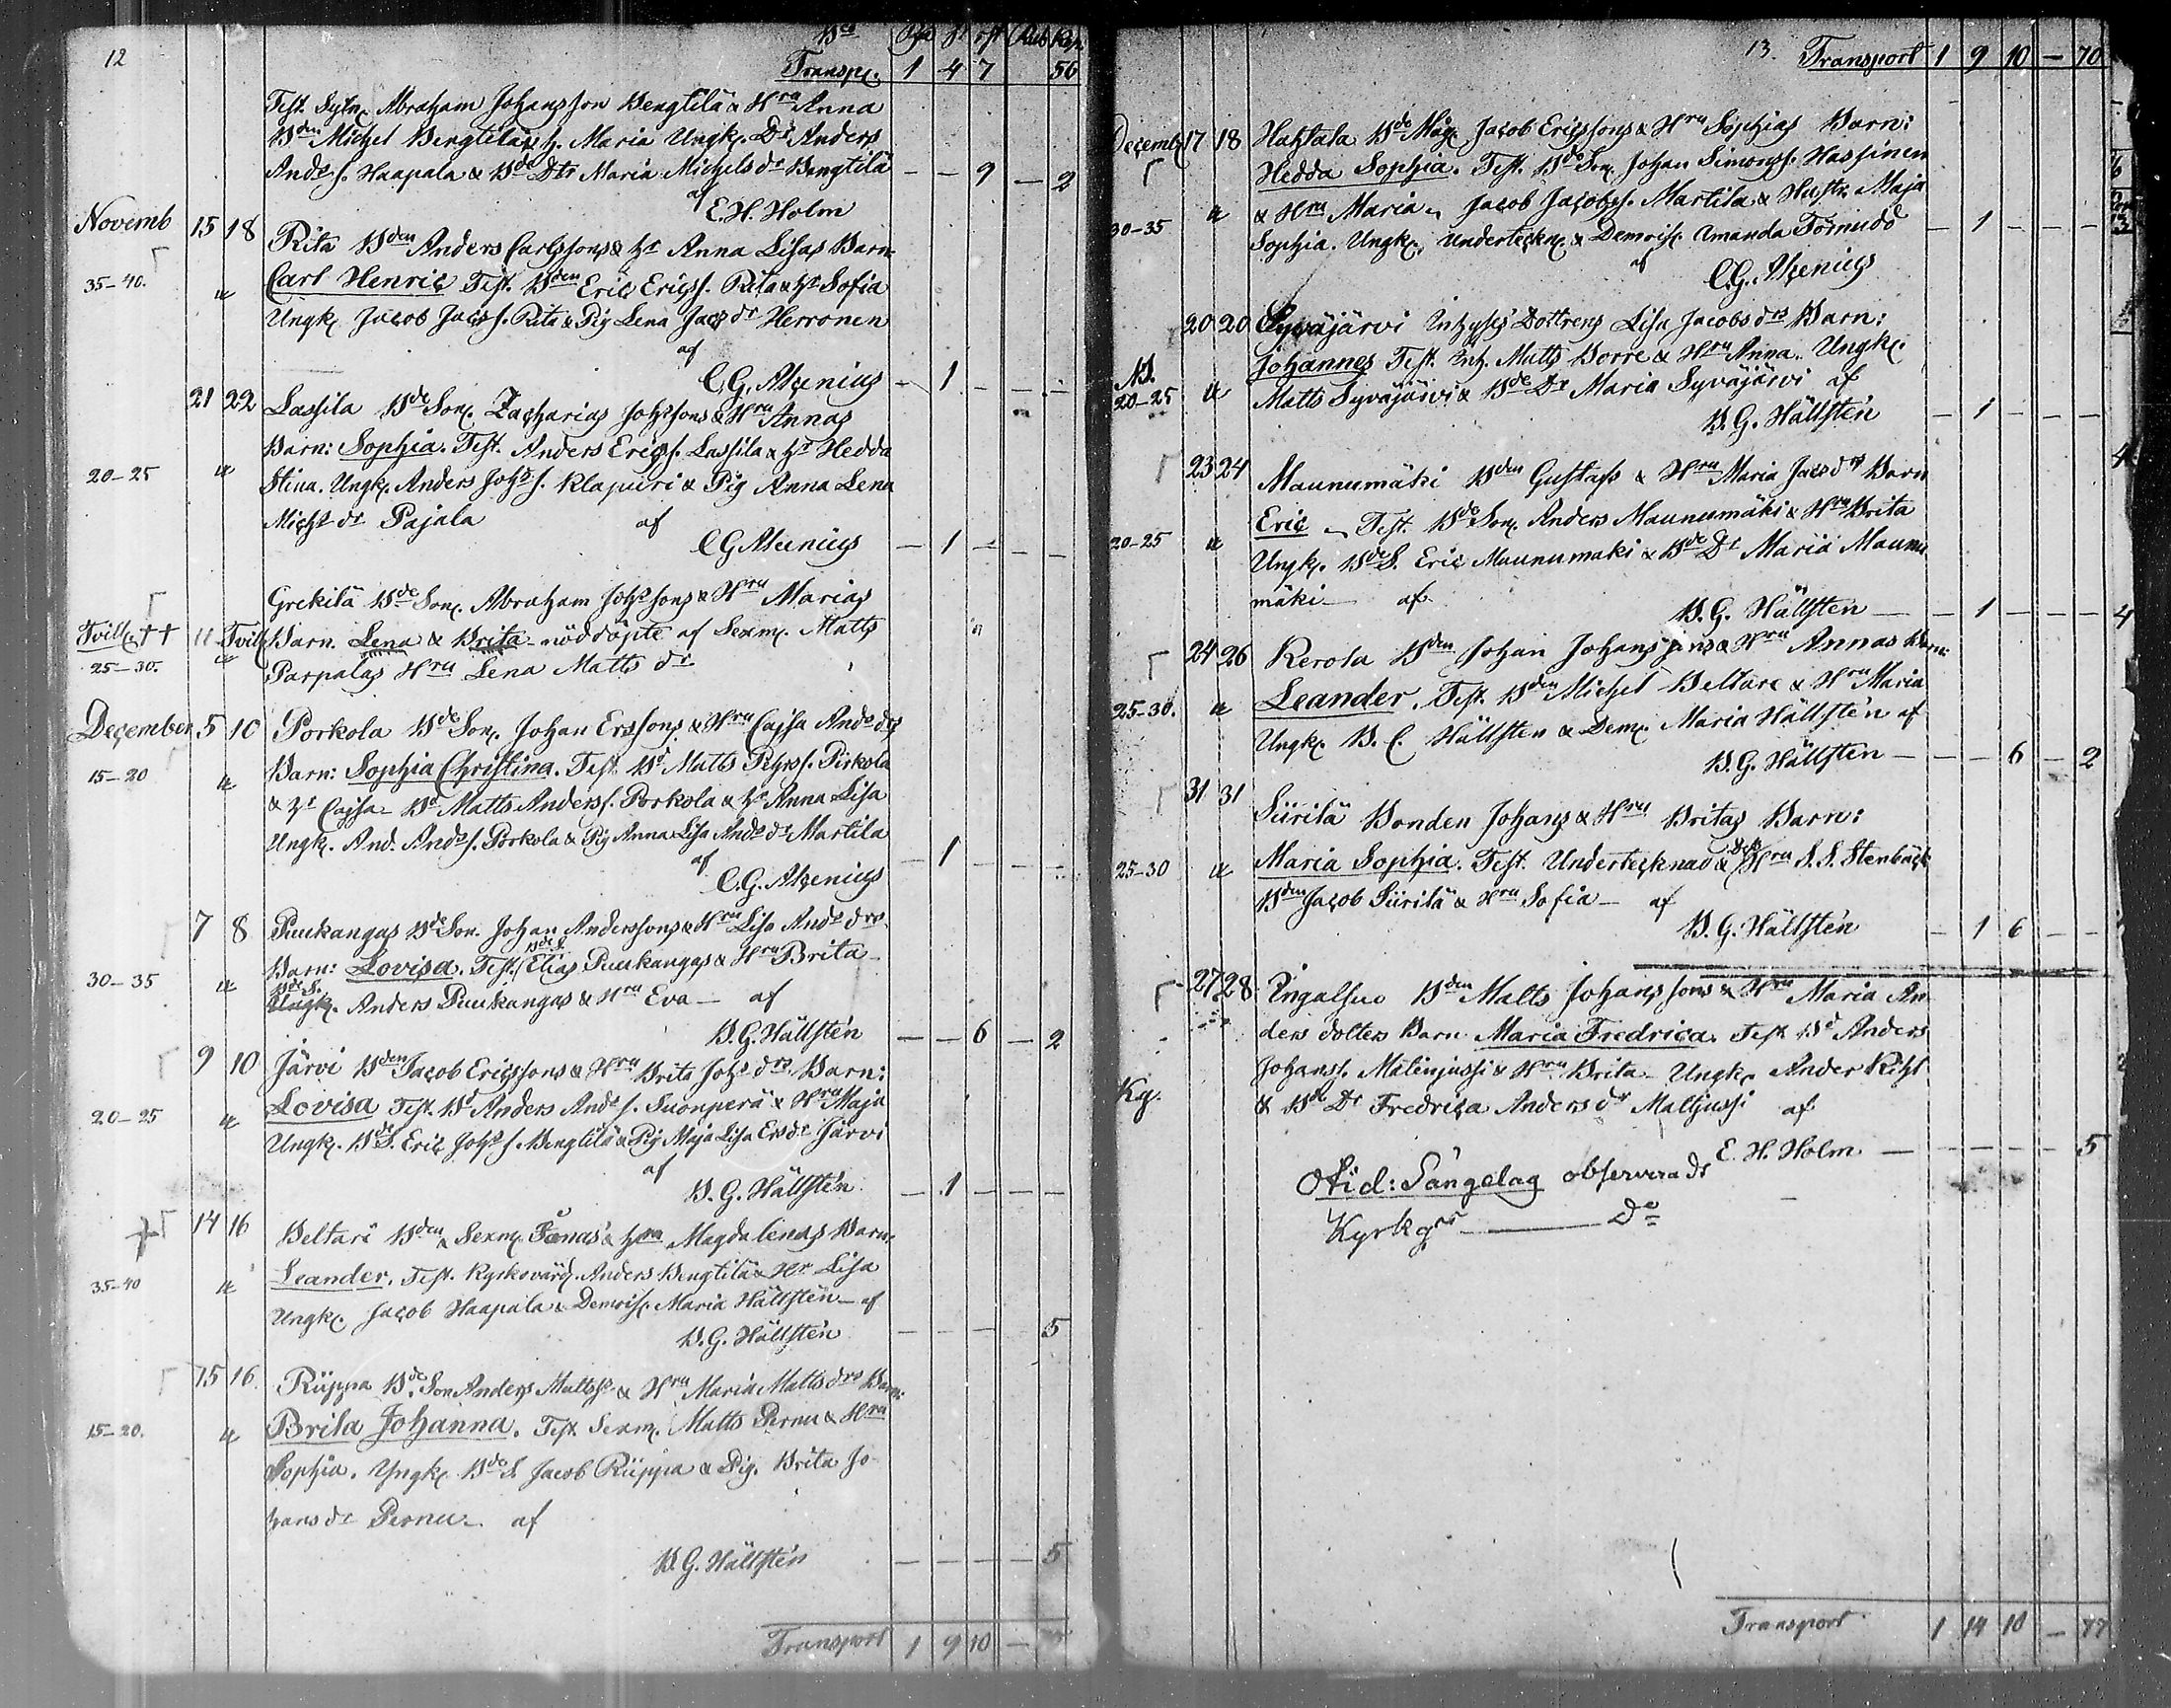 12
Bco Sk Rub Kop
Transp. 1 4 7 56
Test. Sytn. Abraham Johansson Bengtilä & Hru Anna
Bden Michel Bengtiläs h. Maria Ungk. Dr Anders
Ands s. Haapala & Bde Dtr Maria Michelsdr Bengtilä — — 9 — 2
af
E. H. Holm
Novemb 15 18 Rita Bden Anders Carlssons & hr Anna Lisas Barn:
35-40. u Carl Henric Test. Bden Eric Ericss. Rita & hr Sofia
Ungk. Jacob Jacs s. Rita & Pig Lena Jacsdr Herronen
af
C. G. Alcenius — 1 — — —
21 22 Lassila Bde Son. Zacharias Johssons & Hru Annas
Barn: Sophia. Test. Anders Ericss. Lassila & hr Hedda
20-25 u Stina. Ungk. Anders Johs s. Klapuri & Pig Anna Lena
Michs dr Pajala af
C G Alcenius — 1 — — —
Grekilä Bde Son. Abraham Johssons & Hru Marias
Tvill. †† 11 Tvill Barn. Lena & Brita nöddöpte af Sexm. Matts
25-30. u Parpalas Hru Lena Matts dr
December 5 10 Porkola Bde Son. Johan Erssons & Hru Cajsa Andsdrs
15-20 u Barn: Sophia Christina. Test. Bd Matts Pehrss. Pirkola
& hr Cajsa — Bd Matts Anderss. Porkola & hr Anna Lisa
Ungk. And. Ands s. Porkola & Pig Anna Lisa Ands dr Martila
af — 1 — — —
C. G. Alcenius
7 8 Puukangas Bde Son. Johan Anderssons & Hru Lisa Ands drs
Bde S.
Barn: Lovisa. Test. Elias Puukangas & Hru Brita
Bde S.
30-35 u Ungk. Anders Puukangas & Hru Eva — af
B. G. Hällsten — — 6 — 2
9 10 Järvi Bden Jacob Ericssons & Hru Brita Johs drs Barn:
20-25 u Lovisa Test. Bd Anders Ands s. Suonperä & Hru Maja
Ungk. Bde S. Eric Johs s. Bengtilä & Pig Maja Lisa Ersdr Järvi
af
B. G. Hällsten — 1 — — —
† 14 16 Beltari Bden & Sexm. Jonas & hru Magdalenas Barn:
35-40 u Leander. Test. Kyrkovärd. Anders Bengtilä & Hr Lisa
Ungk. Jacob Haapala & Demois. Maria Hällsten — af
B. G. Hällsten — — — 5
15 16 Riippa Bde Son Anders Mattss. & Hru Maria Matts drs Barn:
15-20. u Brita Johanna. Test. Sexm. Matts Pernu & Hru
Sophia. Ungk. Bde S. Jacob Riippa & Pig. Brita Jo-
hans dr Pernu — af
B. G. Hällsten — — — — 5
Transport 1 9 10 —
13. Transport 1 9 10 — 70
Decemb 17 18 Hahtala Bde Måg. Jacob Ericssons & Hru Sophias Barn:
Hedda Sophia. Test. Bde Son. Johan Simonss. Hassinen
30-35 u & Hru Maria — Jacob Jacobss. Martila & Hustr. Maja
Sophia. Ungk. Underteckn. & Demois. Amanda Törnudd — 1 — — —
af
C. G. Alcenius
20 20 Syväjärvi Inhyses Dottrens Lisa Jacobs drs Barn:
Johannes Test. Inh. Matts Borre & Hru Anna. Ungk.
20-25 u Matts Syväjärvi & Bde Dr Maria Syväjärvi af
B. G. Hällsten — 1 — — —
23 24 Maunumäki Bden Gustafs & Hru Maria Jacs drs Barn
Eric — Test. Bde Son. Anders Maunumäki & Hru Brita
20-25 u Ungk. Bde S. Eric Maunumaki & Bde Dr Maria Maunu
mäki — af
B. G. Hällsten — — 1 — — —
24 26 Kerola Bden Johan Johanssons & Hru Annas Barn:
25-30. u Leander. Test. Bden Michel Beltare & Hru Maria
Ungk. B. C. Hällsten & Dem. Maria Hällsten af
B. G. Hällsten — — — 6 — 2
31 31 Siirilä Bonden Johans & Hru Britas Barn:
25-30 u Maria Sophia. Test. Undertecknad & Hru S. S. Stenbäck
Bden Jacob Siirilä & Hru Sofia — af
B. G. Hällsten — 1 6 — —
27 28 Ingalsuo Bden Matts Johanssons & Hru Maria An-
ders dotters Barn Maria Fredrica. Test. Bd Anders
Johanss. Matinjussi & Hru Brita — Ungk.
Kg. & Bde Dr Fredrica Anders dr af
E. H. Holm — — — — — 5
Otid: Sängelag observerads
Kyrkgr ——— Do
Transport 1 14 10 — 77